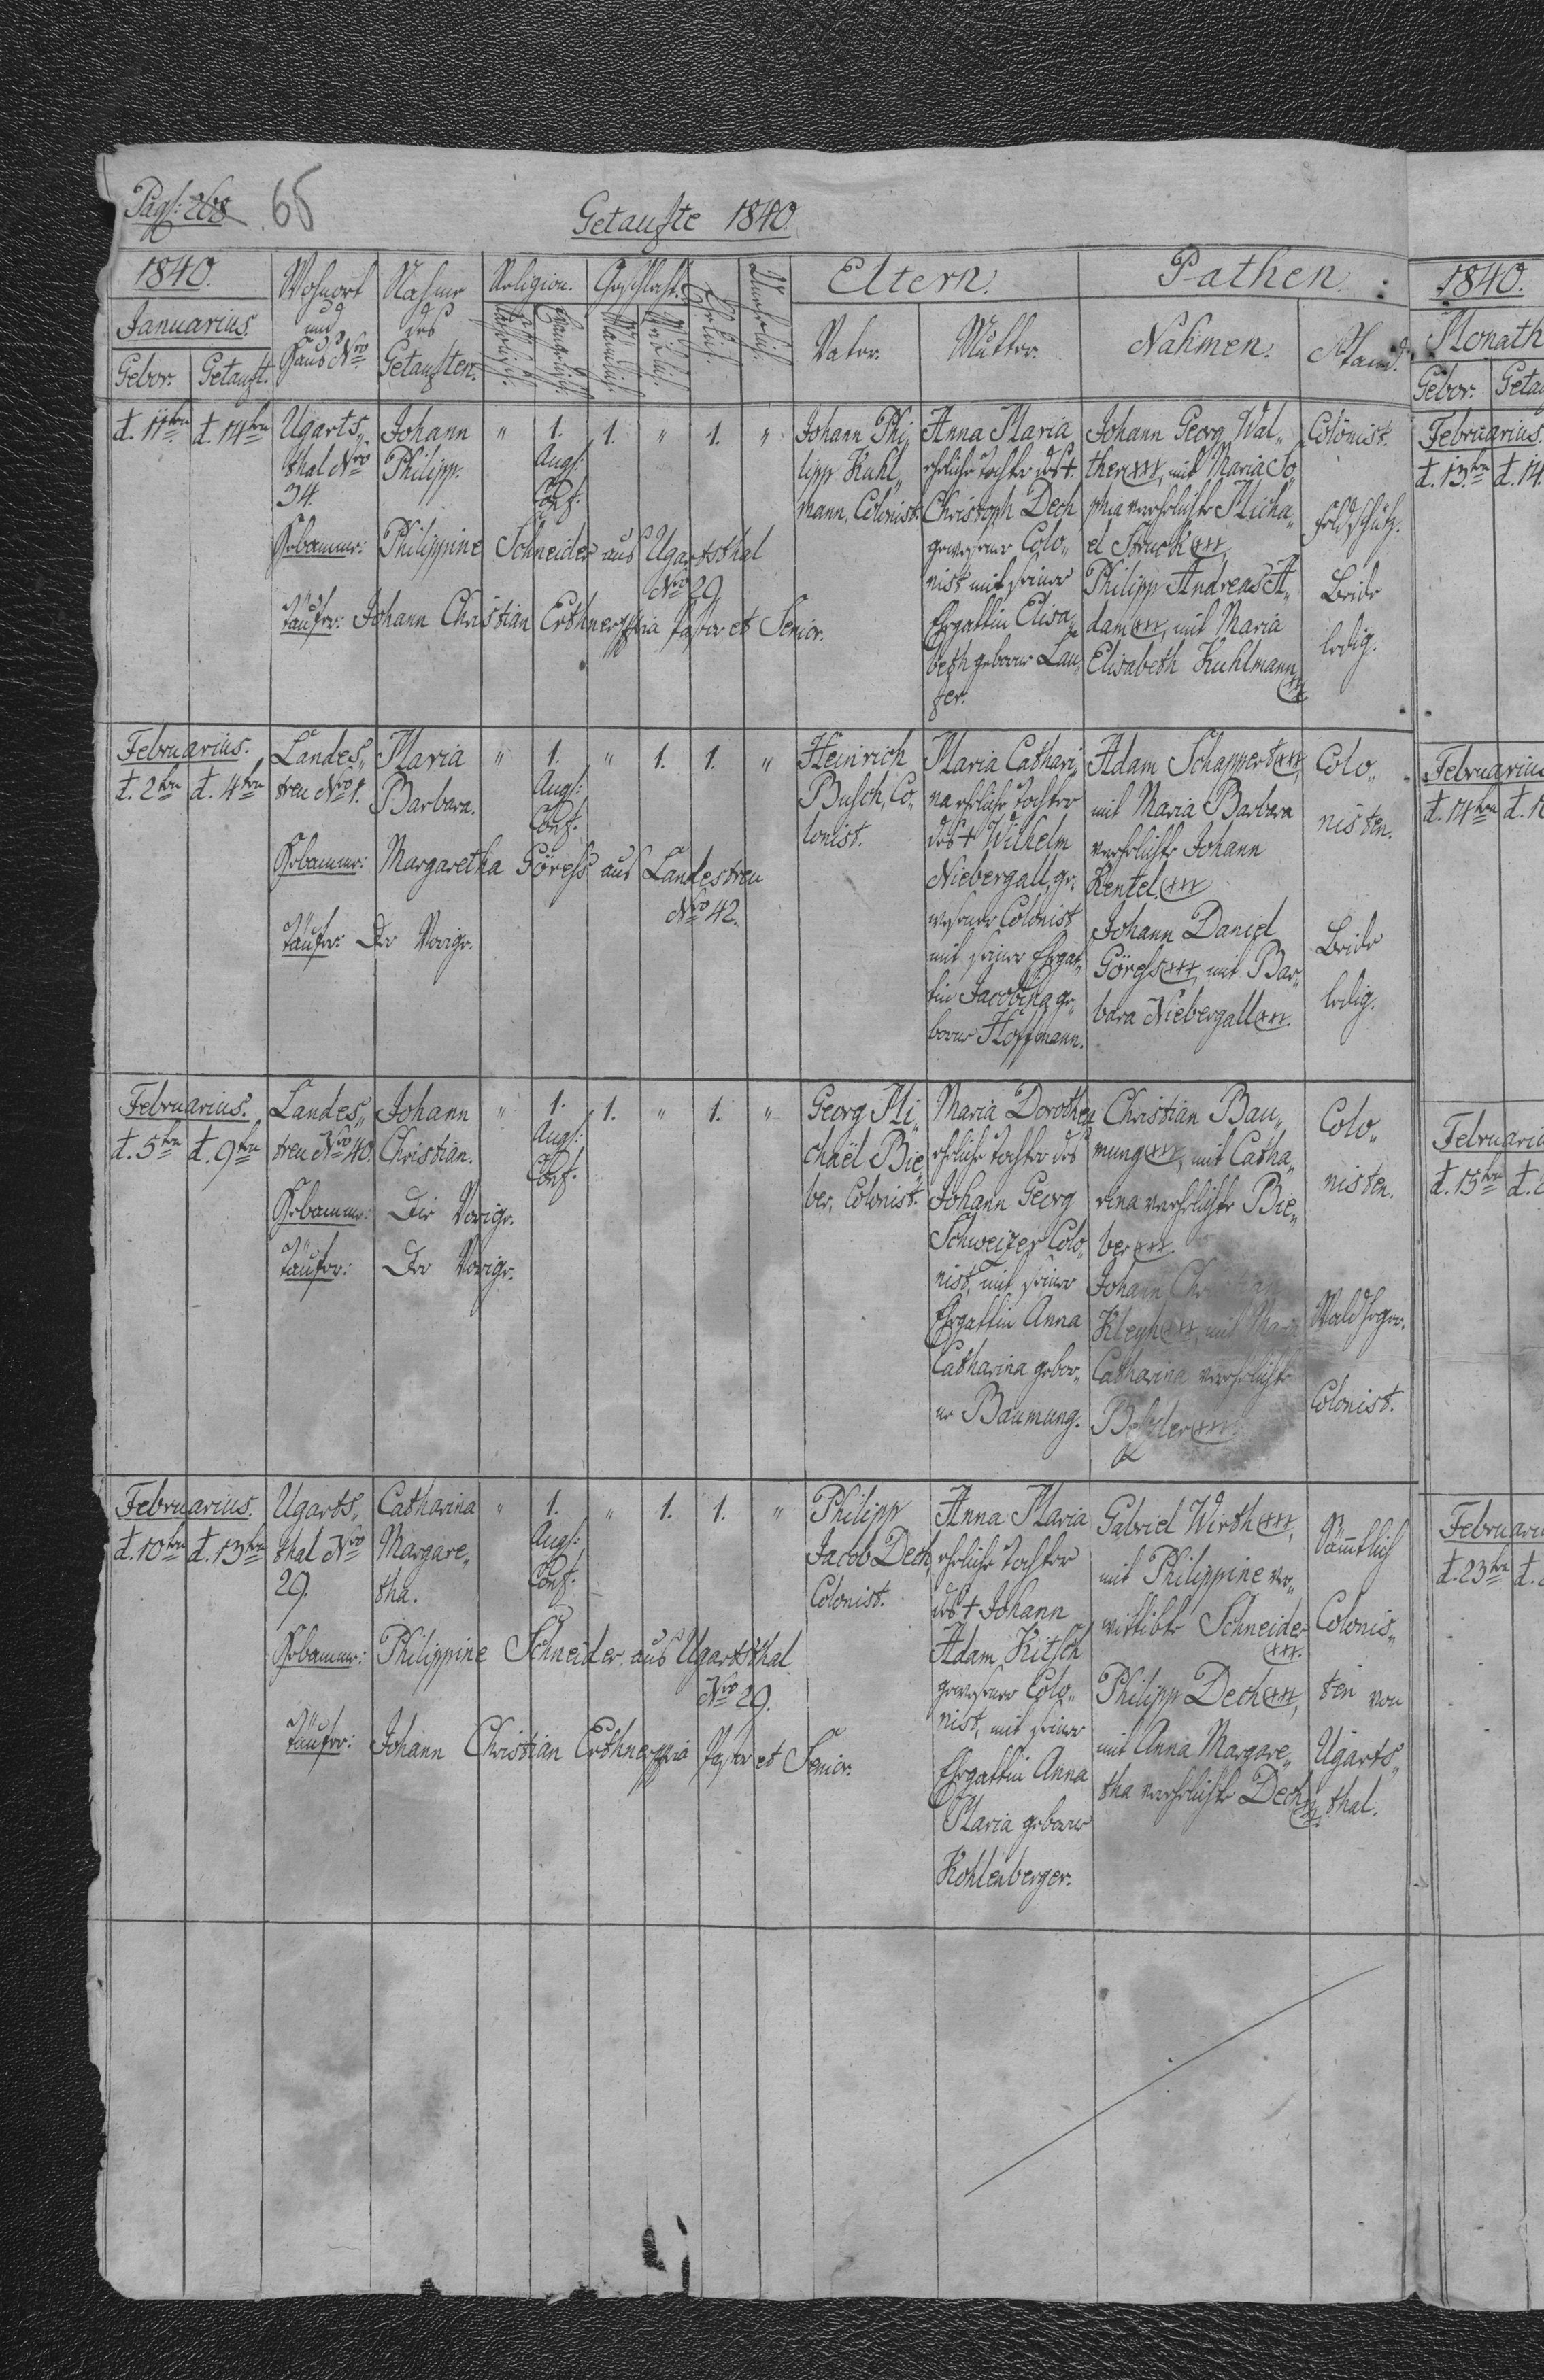 Pag: 268 65
Getaufte 1840.
1840.
Januarius.
Gebor. Getauft.
Wohnort
und
Haus Nro
Nahme
des
Getauften.
Religion.
Katholisch.
Evangelisch.
Geschlecht.
Männlich.
Weiblich.
Ehelich.
Unehelich.
Eltern.
Vater.
Mutter.
Pathen.
Nahmen.
Stand.
d. 11ten d. 14ten
Ugarts„
thal Nro
34.
Johann
Philipp.
„ 1. 1. „ 1. „
Aug:
Conf:
Johann Phi„
lipp Kuhl„
mann, Colonist.
Anna Maria
eheliche Tochter des †
Christoph Dech
gewesener Colo„
nist mit seiner
Ehgattin Elisa„
beth geborne Lau„
fer.
Johann Georg Wal„
ther xxx, mit Maria So„
phia verehlichte Micha„
el Struck xxx,
Philipp Andreas A„
dam xxx, mit Maria
Elisabeth Kuhlmann
xxx
Colonist.
Feldschütz.
Beide
ledig.
Hebamme: Philippine Schneider aus Ugartsthal
Nro 29
Taufer: Johann Christian Erthner mpia Pastor et Senior.
Februarius.
d. 2ten d. 4ten
Landes„
treu Nro 1.
Maria
Barbara.
„ 1. „ 1. 1. „
Aug:
Conf:
Heinrich
Busch, Co„
lonist.
Maria Cathari„
na eheliche Tochter
des † Wilhelm
Niebergall, ge„
wesener Colonist
mit seiner Ehgat„
tin Jacobina ge„
borne Hoffmann.
Adam Schappert xxx,
mit Maria Barbara
verehlichte Johann
Kentel. xxx
Johann Daniel
Görgs xxx, mit Bar„
bara Niebergall xxx.
Colo„
nisten.
Beide
ledig.
Hebamme: Margaretha Görgs aus Landestreu
Nro 42.
Taufer: Der Vorige.
Februarius.
d. 5ten d. 9ten
Landes„
treu Nro 40.
Johann
Christian.
„ 1. 1. „ 1. „
Aug:
Conf:
Georg Mi„
chaël Bie„
ber, Colonist.
Maria Dorothea
eheliche Tochter des
Johann Georg
Schweizer Colo„
nist, mit seiner
Ehgattin Anna
Catharina gebor„
ne Baumung.
Christian Bau„
mung xxx, mit Catha„
rina verehlichte Bie„
ber xxx.
Johann Christian
xxx, mit Maria
Catharina verehlichte
xxx.
Colo„
nisten.
Waldheger.
Colonist.
Hebamme: Die Vorige.
Taufer: Der Vorige.
Februarius.
d. 10ten d. 13ten
Ugarts„
thal Nro
29.
Catharina
Margare„
tha.
„ 1. „ 1. 1. „
Aug:
Conf:
Philipp
Jacob Dech,
Colonist.
Anna Maria
eheliche Tochter
des † Johann
Adam Kitsch
gewesener Colo„
nist, mit seiner
Ehgattin Anna
Maria geborne
Kohlenberger.
Gabriel Wirth xxx,
mit Philippine ver„
wittibte Schneider
xxx.
Philipp Dech xxx,
mit Anna Margare„
tha verehlichte Dech xxx.
Sämtlich
Colonis„
ten von
Ugarts„
thal.
Hebamme: Philippine Schneider, aus Ugartsthal
Nro 29.
Taufer: Johann Christian Erthner mpia Pastor et Senior.
1840.
Monath
Gebor. Getau
Februarius.
d. 13ten d. 14.
Februarius
d. 14ten d. 1
Februariu
d. 15ten d.
Februariu
d. 23ten d.